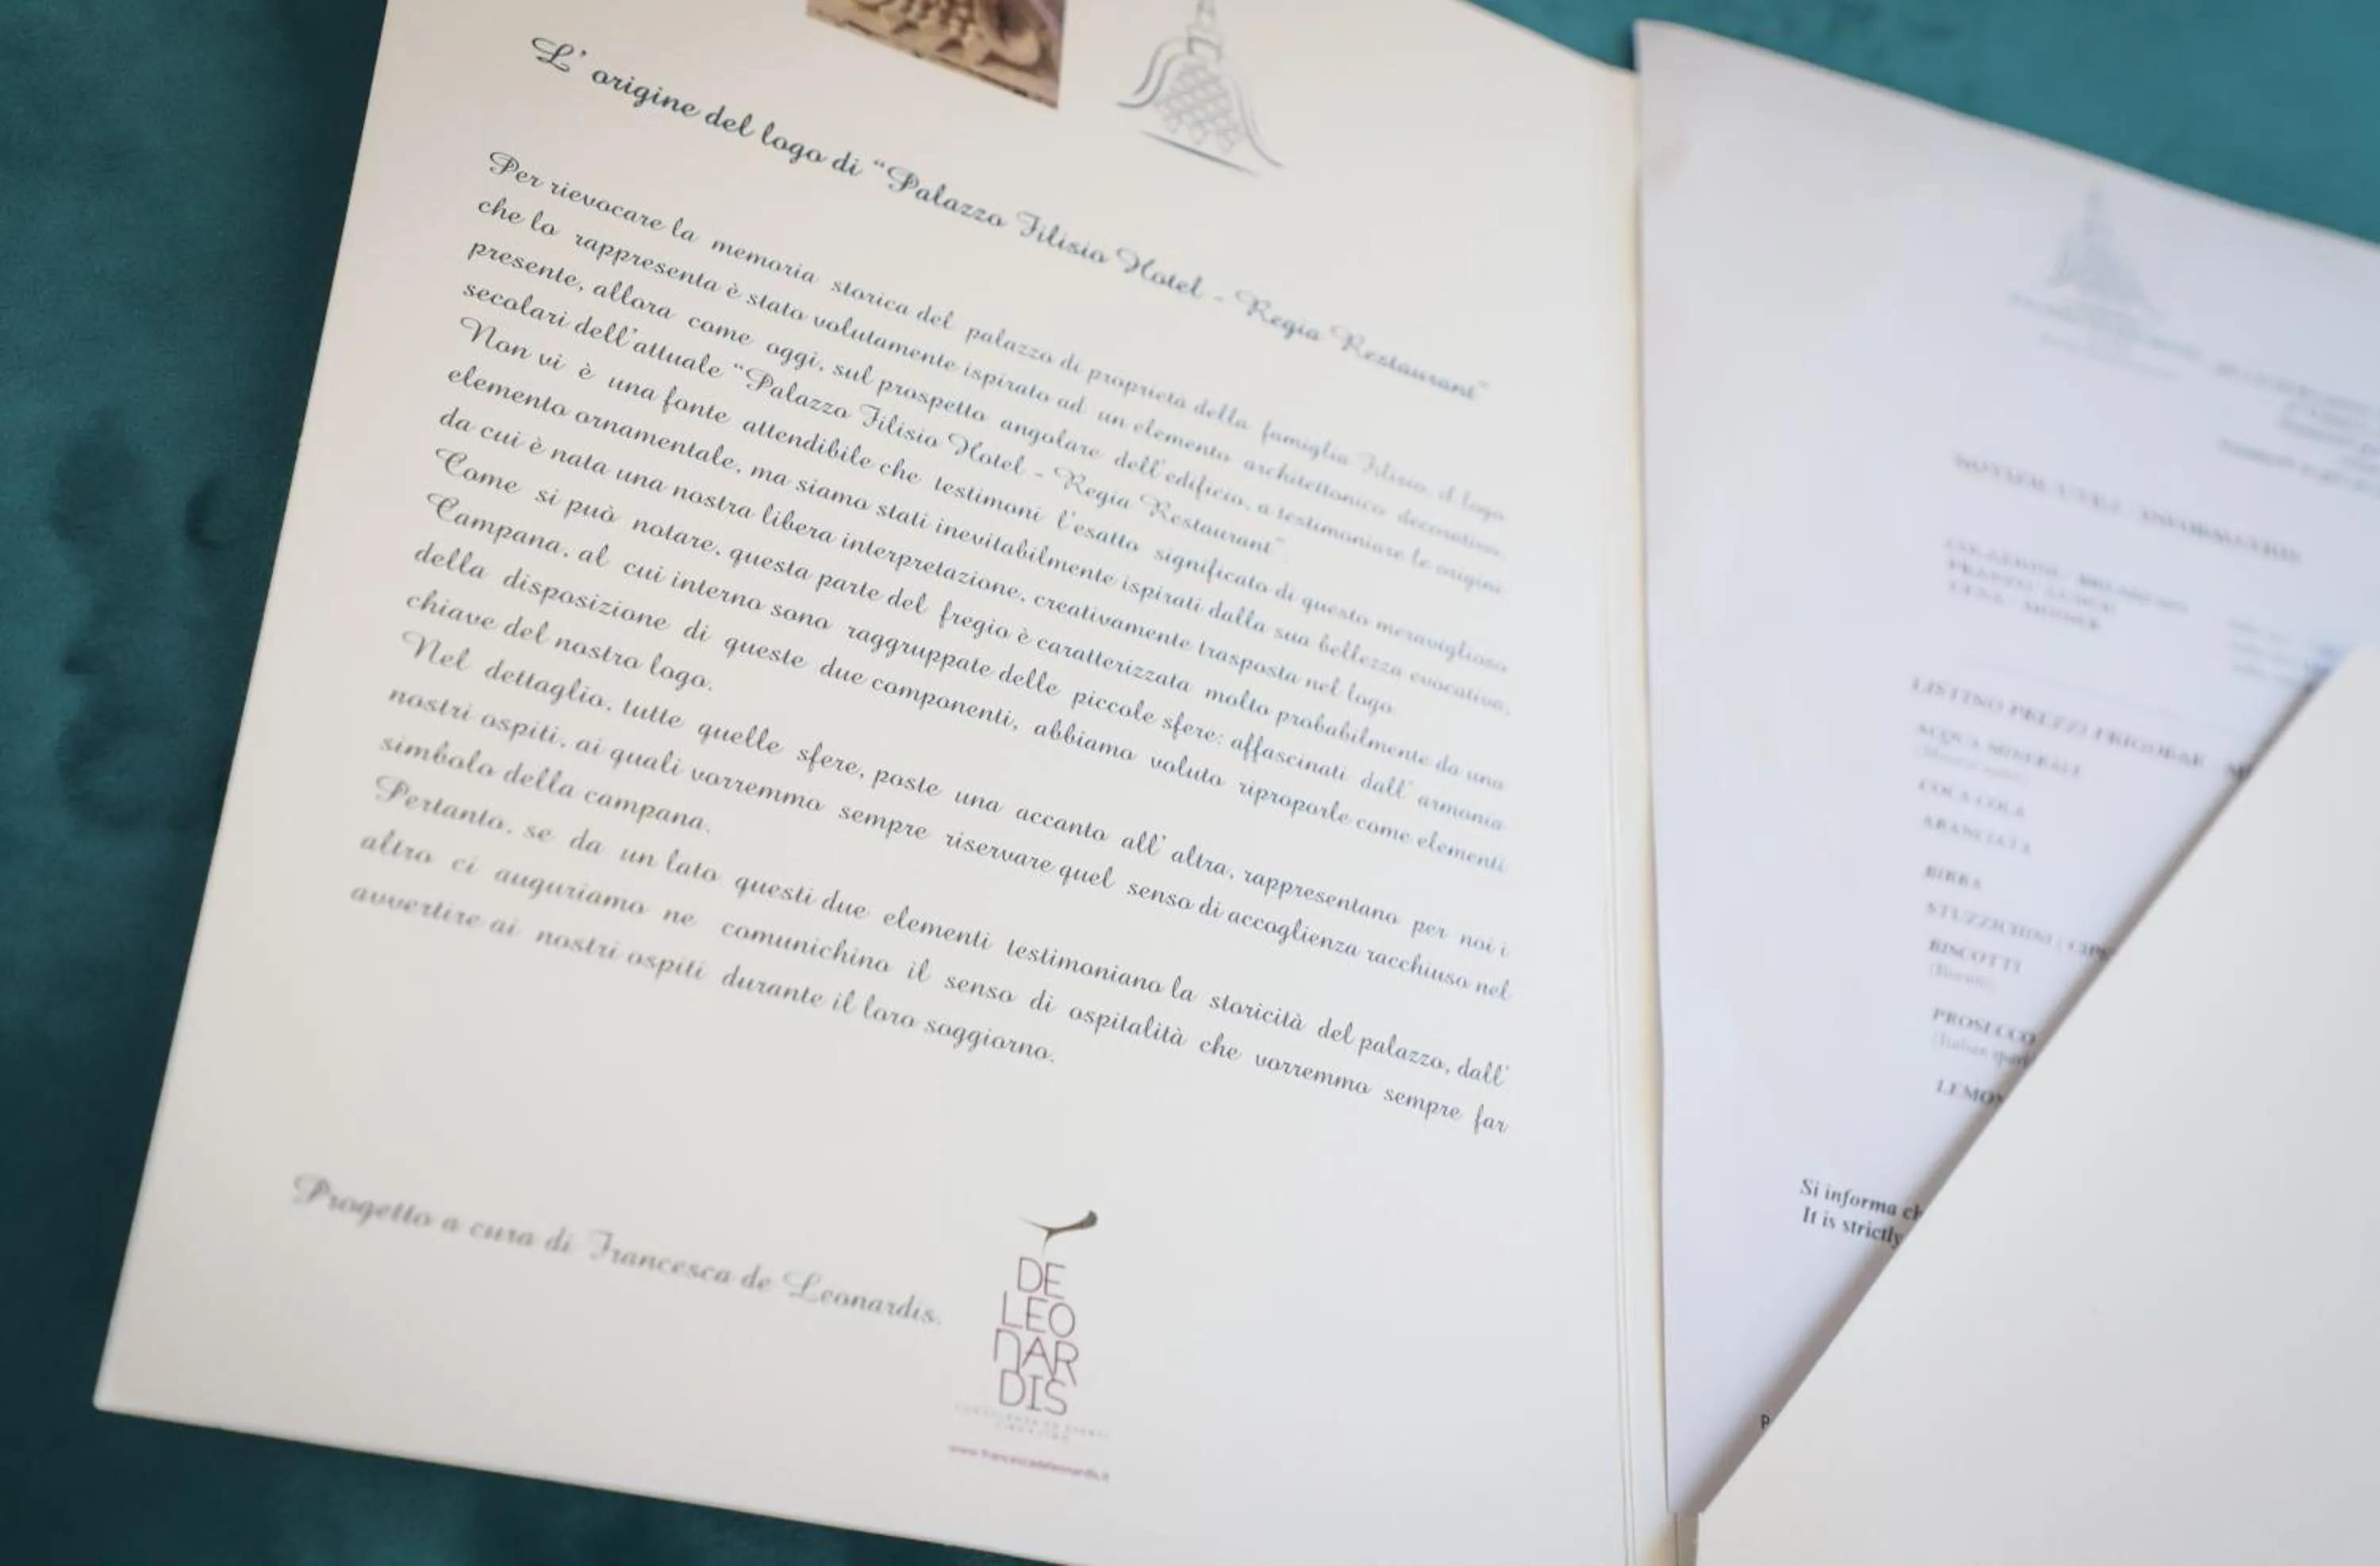 L' origine del logo di “Palazzo Filisio Hotel - Regia Restaurant”
Per rievocare la memoria storica del palazzo di proprietà della famiglia Filisio, il logo
che lo rappresenta è stato volutamente ispirato ad un elemento architettonico decorativo,
presente, allora come oggi, sul prospetto angolare dell'edificio, a testimoniare le origini
secolari dell'attuale “Palazzo Filisio Hotel - Regia Restaurant”.
Non vi è una fonte attendibile che testimoni l'esatto significato di questo meraviglioso
elemento ornamentale, ma siamo stati inevitabilmente ispirati dalla sua bellezza evocativa,
da cui è nata una nostra libera interpretazione, creativamente trasposta nel logo.
Come si può notare, questa parte del fregio è caratterizzata molto probabilmente da una
Campana, al cui interno sono raggruppate delle piccole sfere; affascinati dall' armonia
della disposizione di queste due componenti, abbiamo voluto riproporle come elementi
chiave del nostro logo.
Nel dettaglio, tutte quelle sfere, poste una accanto all' altra, rappresentano per noi i
nostri ospiti, ai quali vorremmo sempre riservare quel senso di accoglienza racchiuso nel
simbolo della campana.
Pertanto, se da un lato questi due elementi testimoniano la storicità del palazzo, dall'
altro ci auguriamo ne comunichino il senso di ospitalità che vorremmo sempre far
avvertire ai nostri ospiti durante il loro soggiorno.
Progetto a cura di Francesca de Leonardis.
DE
LEO
NAR
DIS
www.francescadeleonardis.it
LISTINO PREZZI FRIGOBAR
ACQUA MINERALE
COCA COLA
ARANCIATA
BIRRA
STUZZICHINI
BISCOTTI
PROSECCO
LEMO
Si informa ch
It is strictly
P